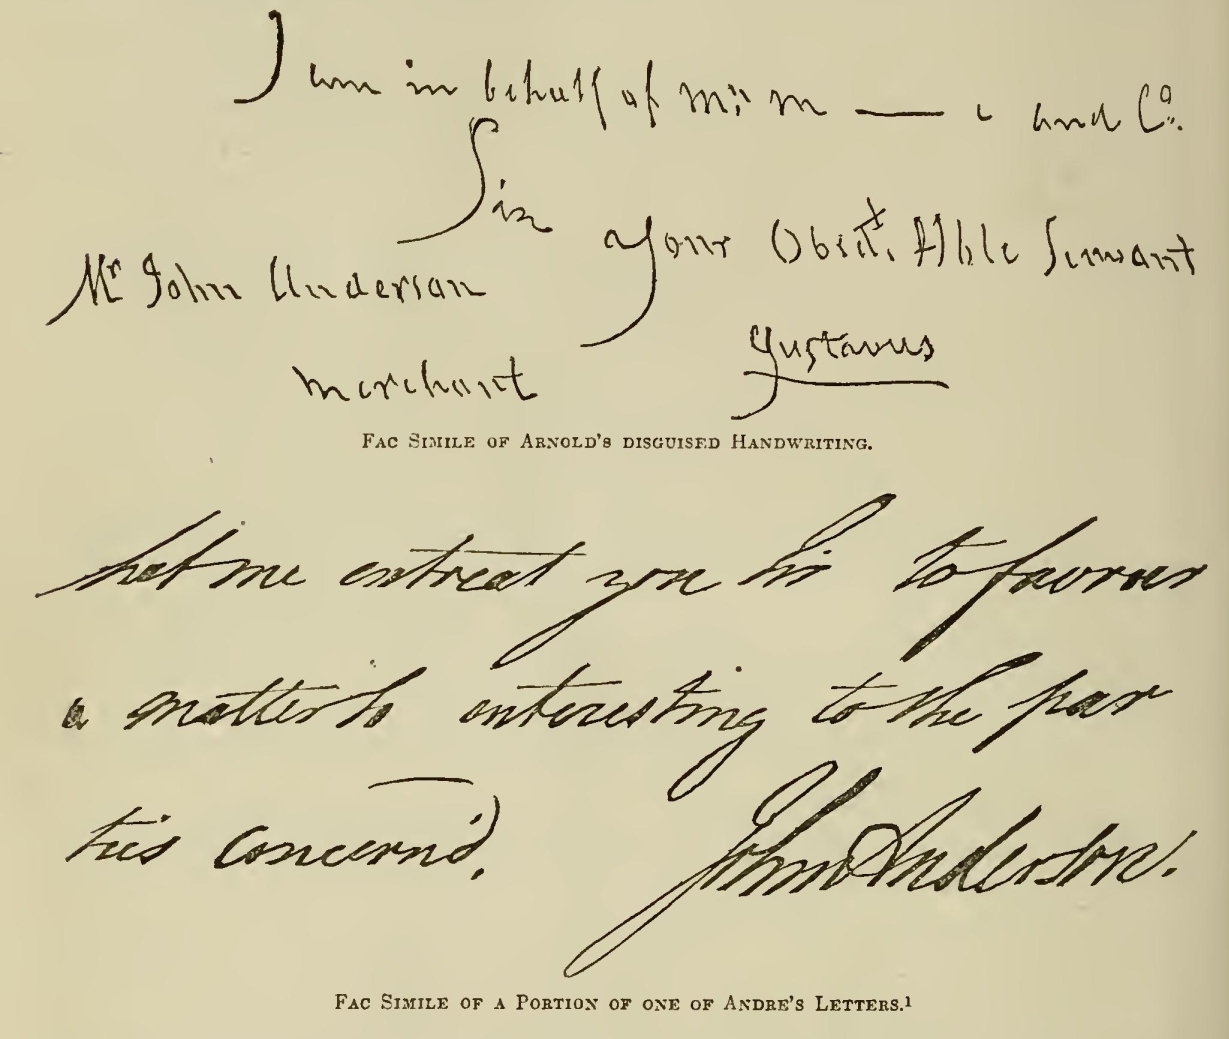 I am in behalf of Mr. M —— e and Co.
Sir
your Obedt. Hble Servant
Mr John Anderson
Gustavus
merchant
FAC SIMILE OF ARNOLD'S DISGUISED HANDWRITING.
Let me entreat you Sir to favour
a matter so interesting to the par
ties concern'd,
John Anderson.
FAC SIMILE OF A PORTION OF ONE OF ANDRE'S LETTERS.¹